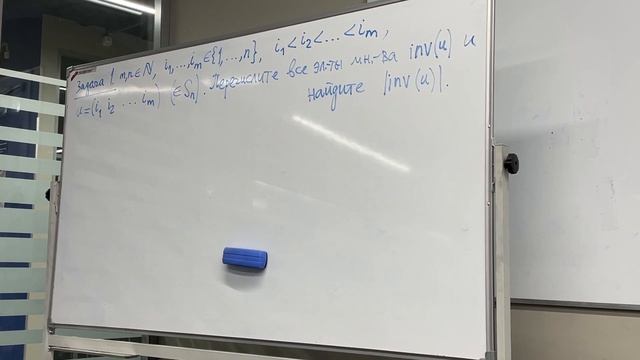 Задача 1. m,n ∈ N, i₁,...,iₘ ∈ {1,...,n}, i₁ < i₂ < ... < iₘ,
u = (i₁ i₂ ... iₘ) (∈ Sₙ). Перечислите все эл-ты мн-ва inv(u) и
найдите |inv(u)|.